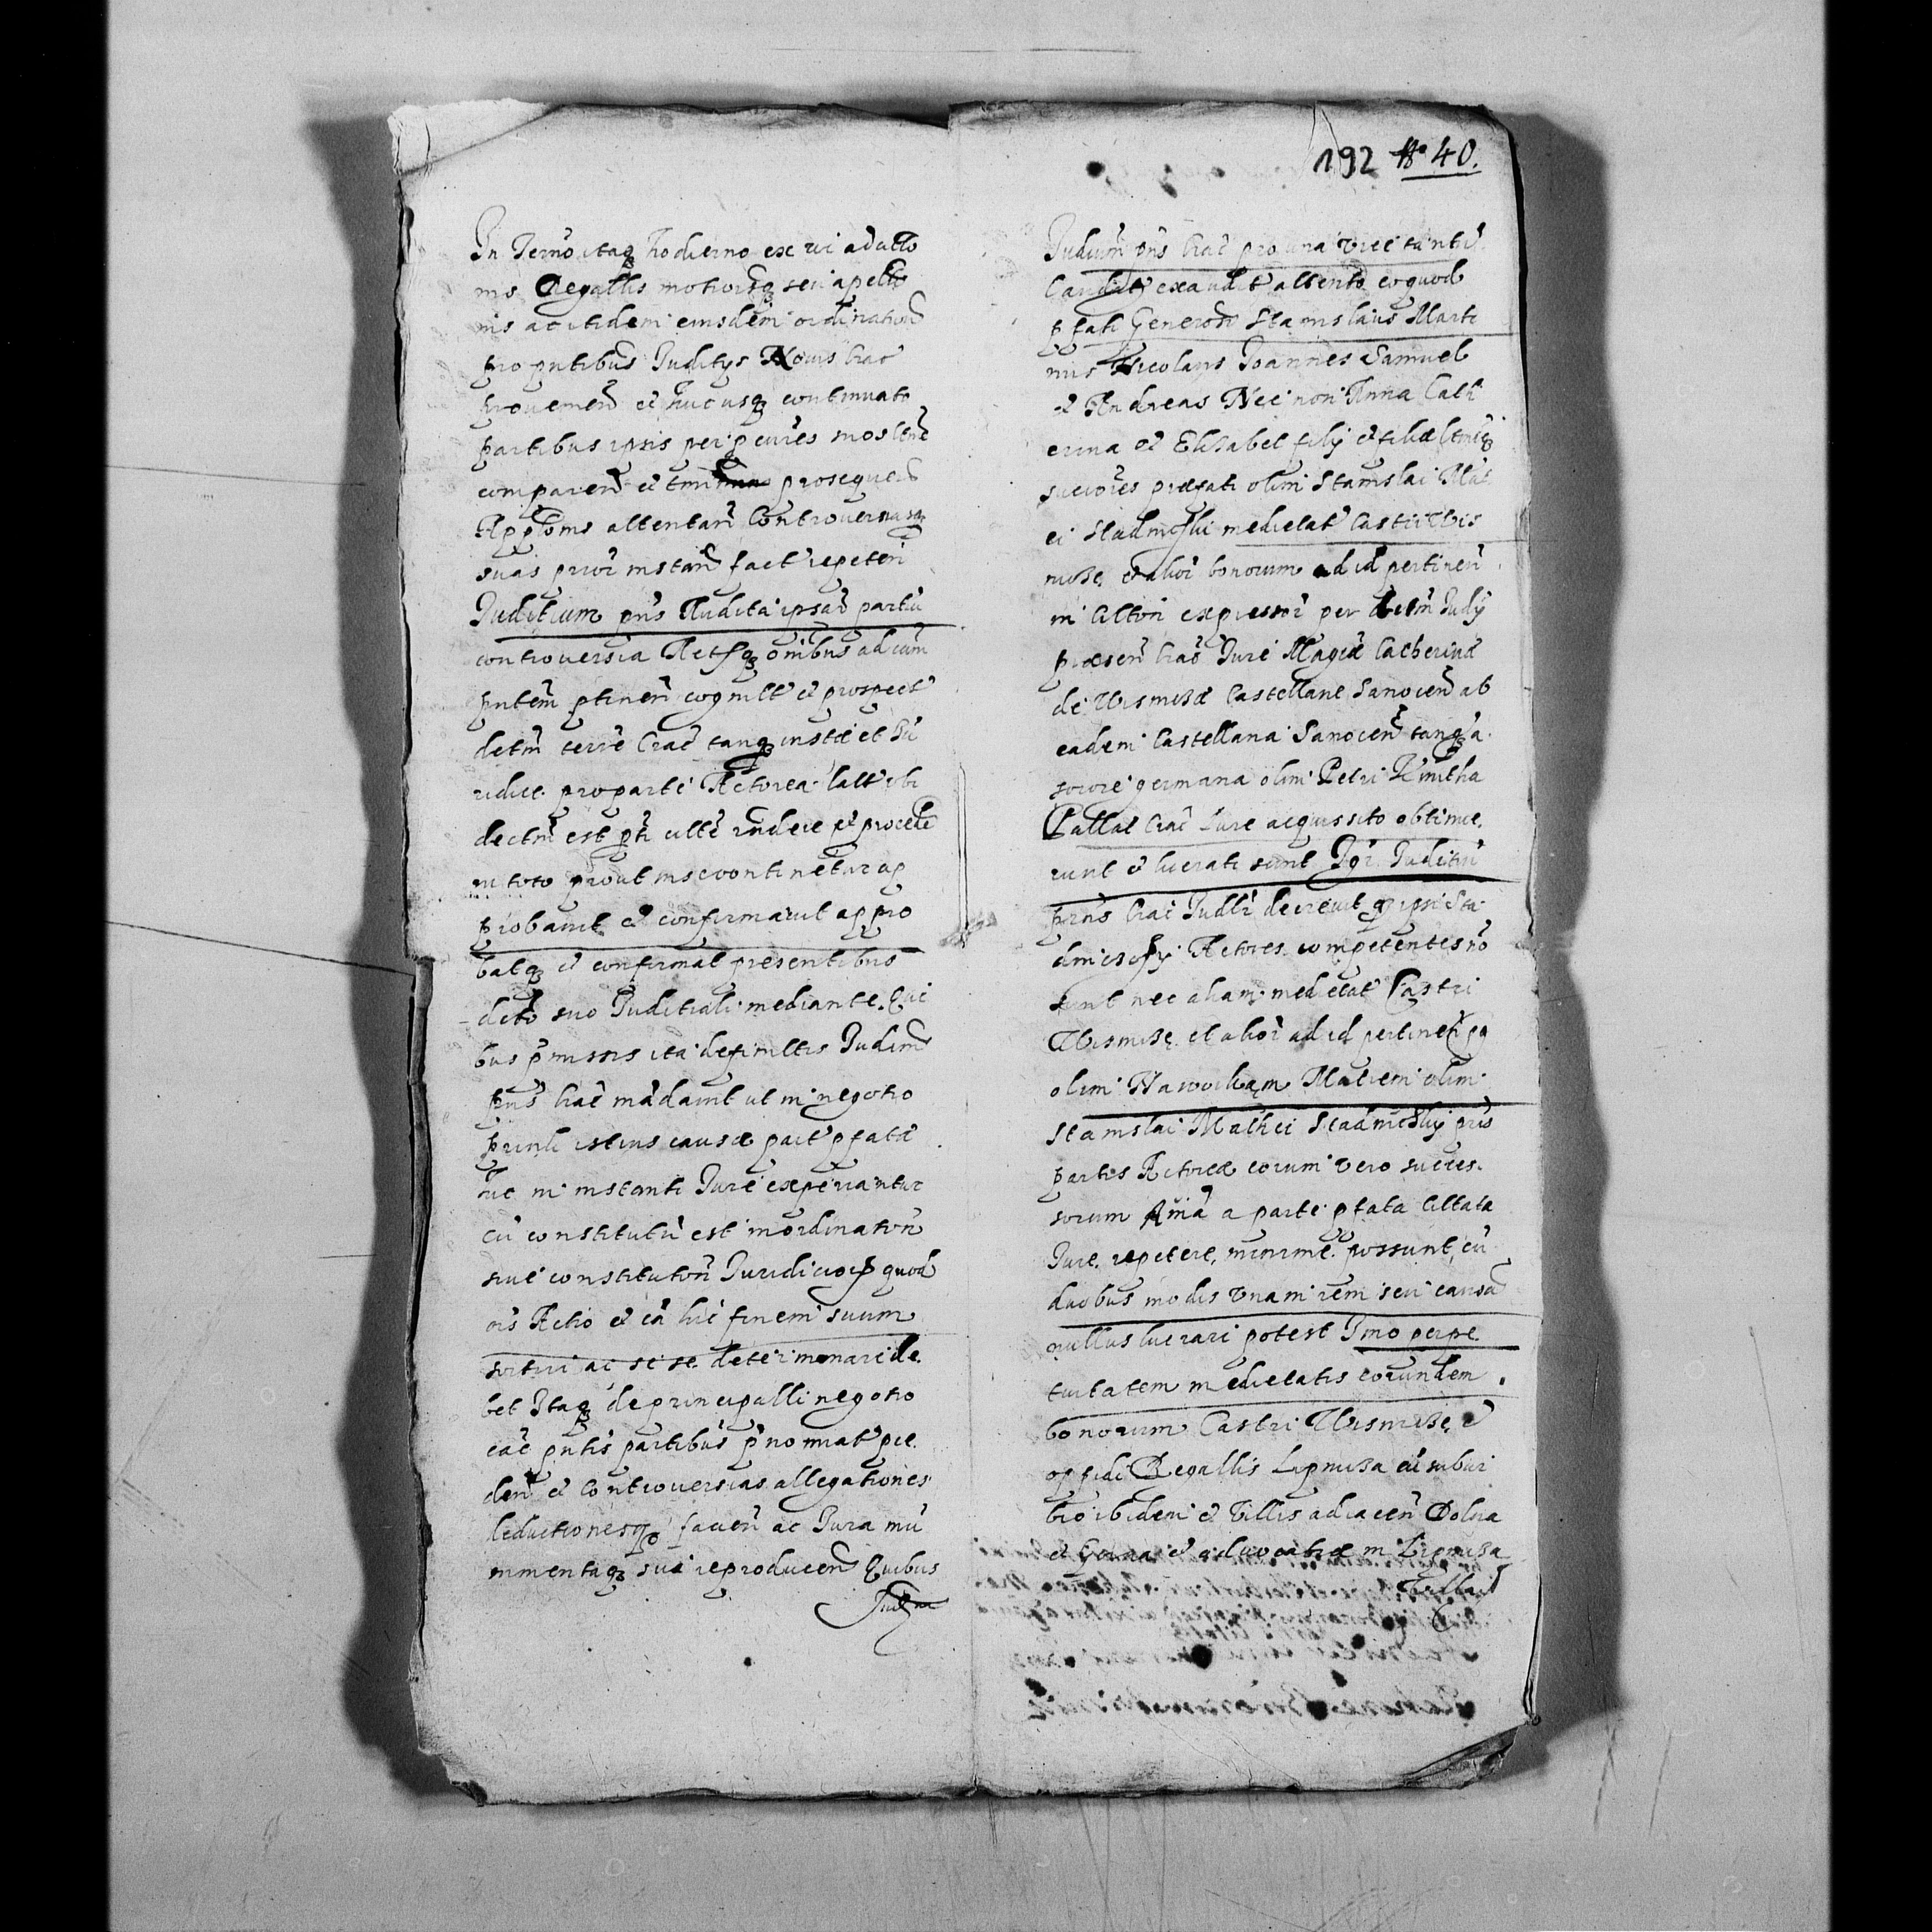 192 No 40.
In Termo itaq hodierno ex vi ad acto
nis Regallis motionisq seu apellо
nis ac itidem eiusdem ordination
pro pntibus Juditys Novis hac
provenien et huc usq continuato
partibus ipsis per pcures suos ltme
comparen et tminum prosequen
Applonis attentan Controversiasq
suas priori instan fact repeten
Juditium pns Audita ipsar partiu
controversia Actisq omibus ad eum
pntem ptinen cognilt et prospect
detm terre Crac tanq iuste et Ju
ridice pro parte Actorea latt ibi
dectm est pti citte rndere et procede
in toto prout in se continetur ap
probavit et confirmavit appro
batq et confirmat presentibus
dcto suo Juditiali mediante Qui
bus pmissis ita definiltis Judim
pns hac madavit ut in negotio
prinli istius causæ part pfatæ
hic in instanti Jure experiantur
cu constitutu est in ordination
sive constitution Juridica quod
ois Actio et ca hic finem suum
sortiri ac se se determinari de
bet Itaq de principalli negotio
eac pntis partibus pnominat pre
den et Controversias allegationes
deductionesq facien ac Jura mu
nimentaq sua reproducen Quibus
Judium pns hac pro una vice tantu
Candit exaudit attento eo quod
pfati Generosi Stanislaus Marti
nus Nicolaus Joannes Samuel
et Andreas Nec non Anna Cath
erina et Elisabet filij et filiæ ltmiq
sucœres præfati olim Stanislai Mat
ei Stadniczki medietat Castri Wis
nicze et alior bonorum ad id pertinen
in Citton expressor per detm Judij
præsen hac Jure Magcæ Catherinæ
de Wisnicze Castellane Sanocen ab
eadem Castellana Sanocen tanq a
sorore germana olim Petri Kmitha
Pallat Crac Jure acquissito obtinue
runt et lucrati sunt Igr Juditiu
prns hac Judlr decrevit q ipsi Sta
dniczscy Actores competentes no
sunt nec aliam medietat Castri
Wisnicze et alior ad id pertinen pq
olim Matrem olim
Stanislai Mathei Stadniczkij pris
partis Actoreæ eorum vero succes
sorum Amia a parte pfata Cittata
Jure repetere minime possunt cu
duobus modis unam rem seu causa
nullus lucrari potest Imo perpe
tuitatem medietatis eorundem
bonorum Castri Wisnicze et
oppidi Regallis Lipnicza cu subur
bio ibidem et Villis adiacen Dolna
et Gorna et advocatiæ in Lipnicza